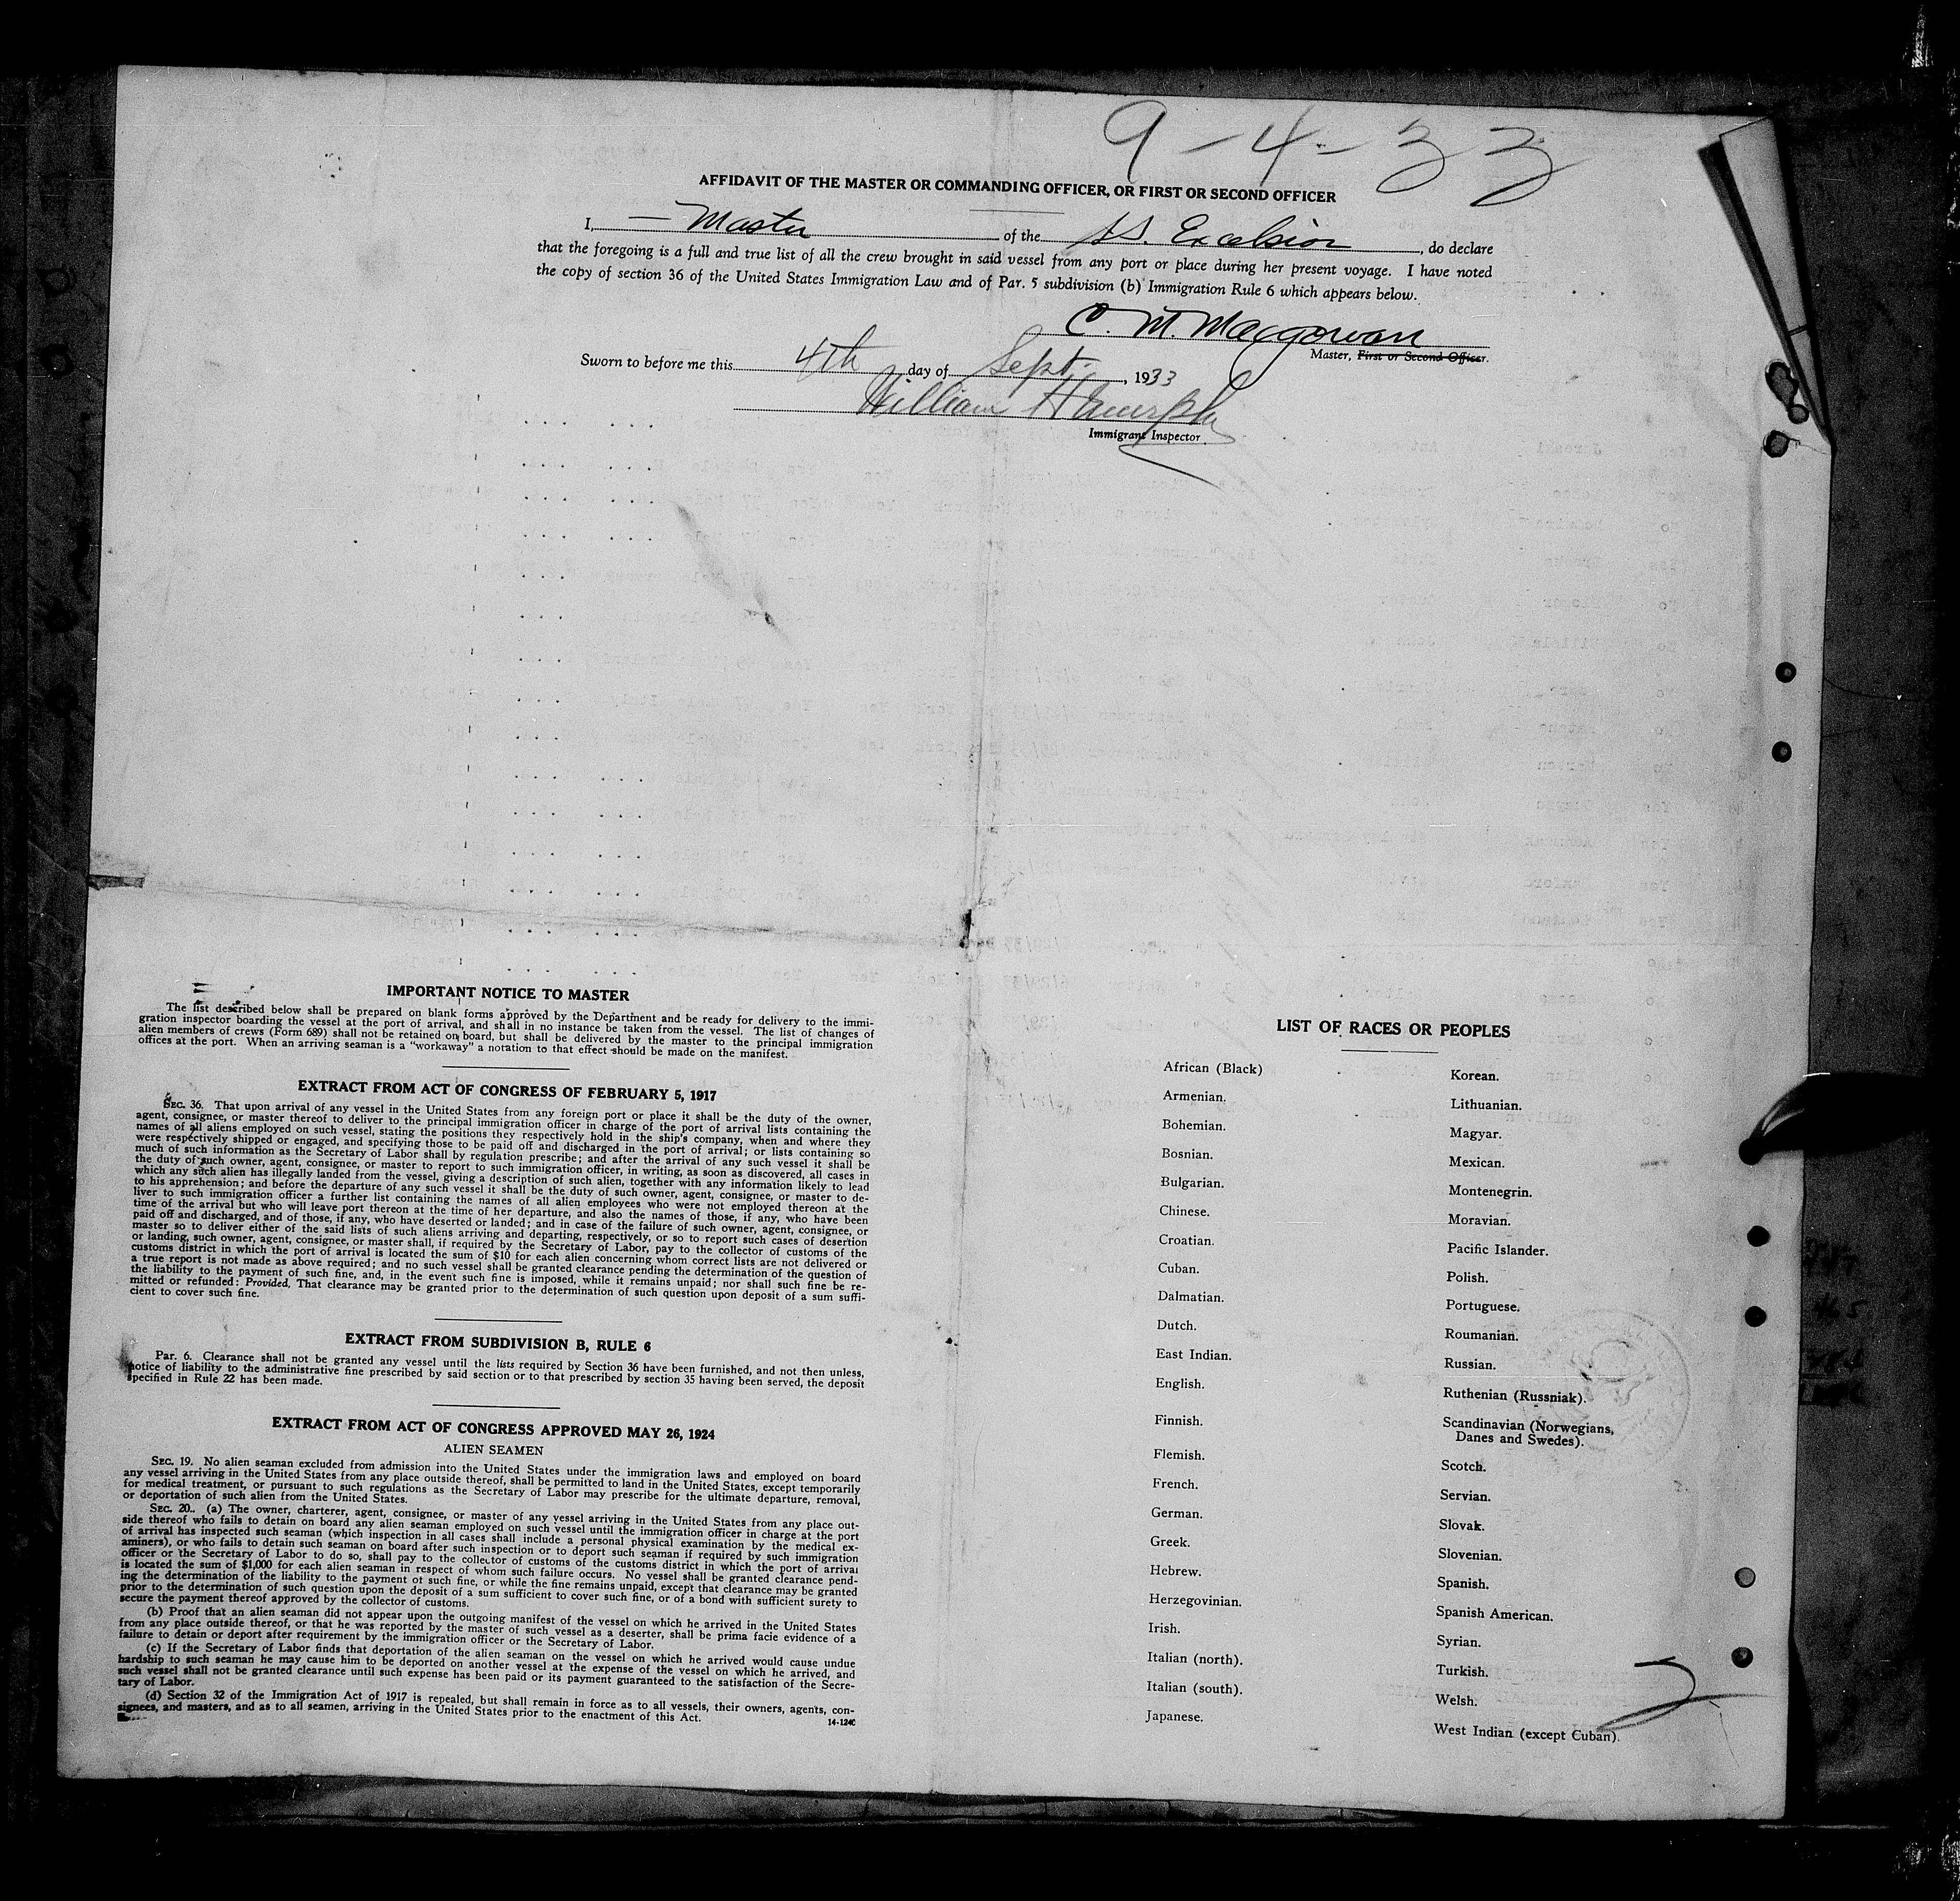 9-4-33
AFFIDAVIT OF THE MASTER OR COMMANDING OFFICER, OR FIRST OR SECOND OFFICER
I, Master of the SS. Excelsior, do declare
that the foregoing is a full and true list of all the crew brought in said vessel from any port or place during her present voyage. I have noted
the copy of section 36 of the United States Immigration Law and of Par. 5 subdivision (b) Immigration Rule 6 which appears below.
C. M. Macgowan
Master, First or Second Officer.
Sworn to before me this 4th day of Sept., 1933
William H Murphy
Immigrant Inspector
IMPORTANT NOTICE TO MASTER
The list described below shall be prepared on blank forms approved by the Department and be ready for delivery to the immi-
gration inspector boarding the vessel at the port of arrival, and shall in no instance be taken from the vessel. The list of changes of
alien members of crews (Form 689) shall not be retained on board, but shall be delivered by the master to the principal immigration
offices at the port. When an arriving seaman is a "workaway" a notation to that effect should be made on the manifest.
EXTRACT FROM ACT OF CONGRESS OF FEBRUARY 5, 1917
SEC. 36. That upon arrival of any vessel in the United States from any foreign port or place it shall be the duty of the owner,
agent, consignee, or master thereof to deliver to the principal immigration officer in charge of the port of arrival lists containing the
names of all aliens employed on such vessel, stating the positions they respectively hold in the ship's company, when and where they
were respectively shipped or engaged, and specifying those to be paid off and discharged in the port of arrival; or lists containing so
much of such information as the Secretary of Labor shall by regulation prescribe; and after the arrival of any such vessel it shall be
the duty of such owner, agent, consignee, or master to report to such immigration officer, in writing, as soon as discovered, all cases in
which any such alien has illegally landed from the vessel, giving a description of such alien, together with any information likely to lead
to his apprehension; and before the departure of any such vessel it shall be the duty of such owner, agent, consignee, or master to de-
liver to such immigration officer a further list containing the names of all alien employees who were not employed thereon at the
time of the arrival but who will leave port thereon at the time of her departure, and also the names of those, if any, who have been
paid off and discharged, and of those, if any, who have deserted or landed; and in case of the failure of such owner, agent, consignee, or
master so to deliver either of the said lists of such aliens arriving and departing, respectively, or so to report such cases of desertion
or landing, such owner, agent, consignee, or master shall, if required by the Secretary of Labor, pay to the collector of customs of the
customs district in which the port of arrival is located the sum of $10 for each alien concerning whom correct lists are not delivered or
a true report is not made as above required; and no such vessel shall be granted clearance pending the determination of the question of
the liability to the payment of such fine, and, in the event such fine is imposed, while it remains unpaid; nor shall such fine be re-
mitted or refunded: Provided, That clearance may be granted prior to the determination of such question upon deposit of a sum suffi-
cient to cover such fine.
EXTRACT FROM SUBDIVISION B, RULE 6
Par. 6. Clearance shall not be granted any vessel until the lists required by Section 36 have been furnished, and not then unless,
notice of liability to the administrative fine prescribed by said section or to that prescribed by section 35 having been served, the deposit
specified in Rule 22 has been made.
EXTRACT FROM ACT OF CONGRESS APPROVED MAY 26, 1924
ALIEN SEAMEN
SEC. 19. No alien seaman excluded from admission into the United States under the immigration laws and employed on board
any vessel arriving in the United States from any place outside thereof, shall be permitted to land in the United States, except temporarily
for medical treatment, or pursuant to such regulations as the Secretary of Labor may prescribe for the ultimate departure, removal,
or deportation of such alien from the United States.
SEC. 20. (a) The owner, charterer, agent, consignee, or master of any vessel arriving in the United States from any place out-
side thereof who fails to detain on board any alien seaman employed on such vessel until the immigration officer in charge at the port
of arrival has inspected such seaman (which inspection in all cases shall include a personal physical examination by the medical ex-
aminers), or who fails to detain such seaman on board after such inspection or to deport such seaman if required by such immigration
officer or the Secretary of Labor to do so, shall pay to the collector of customs of the customs district in which the port of arrival
is located the sum of $1,000 for each alien seaman in respect of whom such failure occurs. No vessel shall be granted clearance pend-
ing the determination of the liability to the payment of such fine, or while the fine remains unpaid, except that clearance may be granted
prior to the determination of such question upon the deposit of a sum sufficient to cover such fine, or of a bond with sufficient surety to
secure the payment thereof approved by the collector of customs.
(b) Proof that an alien seaman did not appear upon the outgoing manifest of the vessel on which he arrived in the United States
from any place outside thereof, or that he was reported by the master of such vessel as a deserter, shall be prima facie evidence of a
failure to detain or deport after requirement by the immigration officer or the Secretary of Labor.
(c) If the Secretary of Labor finds that deportation of the alien seaman on the vessel on which he arrived would cause undue
hardship to such seaman he may cause him to be deported on another vessel at the expense of the vessel on which he arrived, and
such vessel shall not be granted clearance until such expense has been paid or its payment guaranteed to the satisfaction of the Secre-
tary of Labor.
(d) Section 32 of the Immigration Act of 1917 is repealed, but shall remain in force as to all vessels, their owners, agents, con-
signees, and masters, and as to all seamen, arriving in the United States prior to the enactment of this Act.
14-1240
LIST OF RACES OR PEOPLES
African (Black)
Armenian.
Bohemian.
Bosnian.
Bulgarian.
Chinese.
Croatian.
Cuban.
Dalmatian.
Dutch.
East Indian.
English.
Finnish.
Flemish.
French.
German.
Greek.
Hebrew.
Herzegovinian.
Irish.
Italian (north).
Italian (south).
Japanese.
Korean.
Lithuanian.
Magyar.
Mexican.
Montenegrin.
Moravian.
Pacific Islander.
Polish.
Portuguese.
Roumanian.
Russian.
Ruthenian (Russniak).
Scandinavian (Norwegians,
Danes and Swedes).
Scotch.
Servian.
Slovak.
Slovenian.
Spanish.
Spanish American.
Syrian.
Turkish.
Welsh.
West Indian (except Cuban).